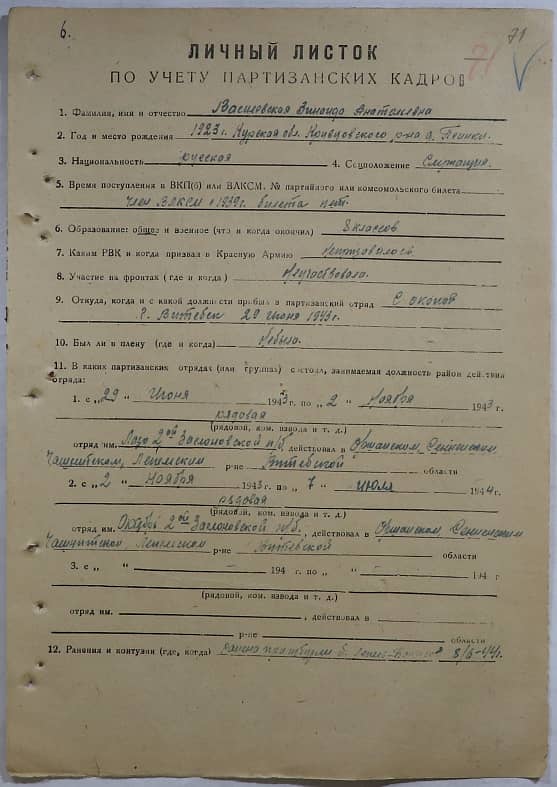 6.
71
71
ЛИЧНЫЙ ЛИСТОК
ПО УЧЕТУ ПАРТИЗАНСКИХ КАДРОВ
1. Фамилия, имя и отчество Василевская Зинаида Анатолевна
2. Год и место рождения 1923 г. Курская обл. Кривцовского р-на д.
3. Национальность русская 4. Соцположение Служащая.
5. Время поступления в ВКП(б) или ВЛКСМ. № партийного или комсомольского билета
Член ВЛКСМ с 1939 г. билета нет.
6. Образование: общее и военное (что и когда окончил) 8 классов
7. Каким РВК и когда призван в Красную Армию Непризывалась
8. Участие на фронтах (где и когда) Неучаствовала.
9. Откуда, когда и с какой должности прибыл в партизанский отряд С окопов
г. Витебск 29 июня 1943 г.
10. Был ли в плену (где и когда) Небыла.
11. В каких партизанских отрядах (или группах) состоял, занимаемая должность район действия
отряда:
1. с „29“ Июня 1943 г. по „2“ Ноября 1943 г.
рядовая
(рядовой, ком. взвода и т. д.)
отряд им. Лазо 2ой Заслоновской п/б, действовал в Оршанском, Сенненском,
Чашникском, Лепельским р-не Витебской области
2. с „2“ Ноября 1943 г. по „7“ июля 1944 г.
рядовая
(рядовой, ком. взвода и т. д.)
отряд им. 2ой Заслоновской п/б., действовал в Оршанском, Сенненским
Чашникской Лепельском р-не Витебской области
3. с „ “ 194 г. по „ “ 194 г
(рядовой, ком. взвода и т. д.)
отряд им. , действовал в
р-не области
12. Ранения и контузии (где, когда) ранена 8/6-44 г.